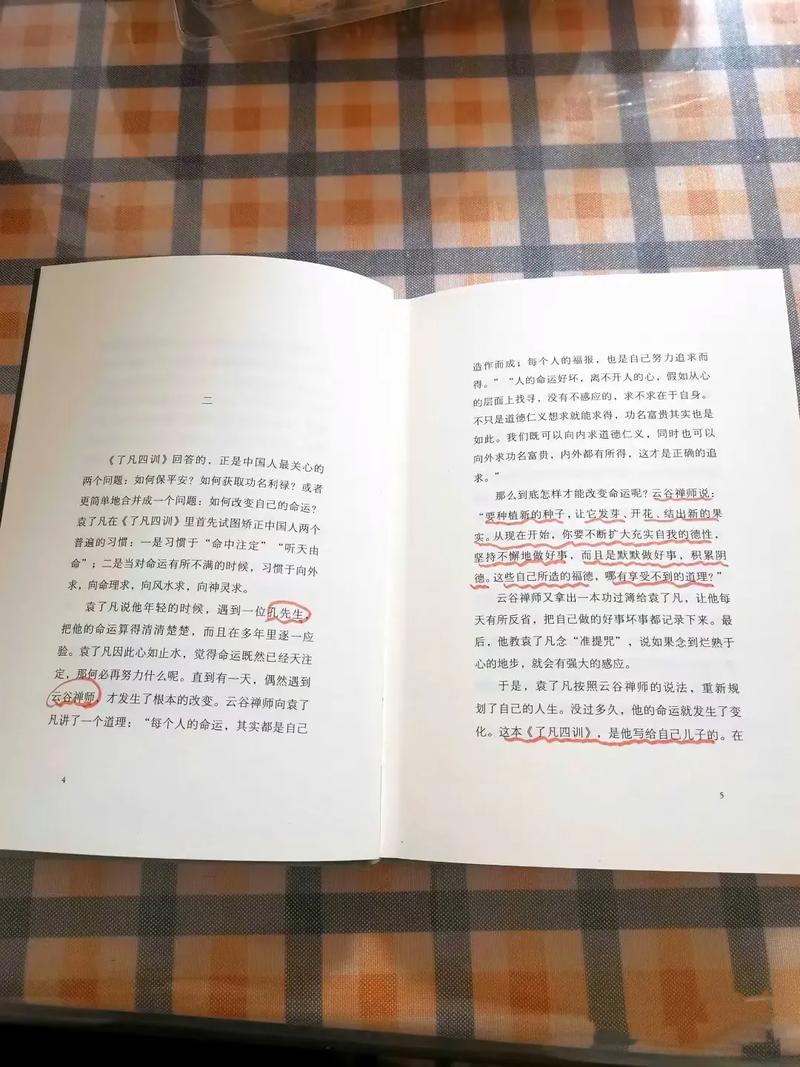 二
《了凡四训》回答的，正是中国人最关心的
两个问题：如何保平安？如何获取功名利禄？或者
更简单地合并成一个问题：如何改变自己的命运？
袁了凡在《了凡四训》里首先试图矫正中国人两个
普遍的习惯：一是习惯于“命中注定”“听天由
命”；二是当对命运有所不满的时候，习惯于向外
求，向命理求，向风水求，向神灵求。
袁了凡说他年轻的时候，遇到一位孔先生，
把他的命运算得清清楚楚，而且在多年里逐一应
验。袁了凡因此心如止水，觉得命运既然已经天注
定，那何必再努力什么呢。直到有一天，偶然遇到
云谷禅师，才发生了根本的改变。云谷禅师向袁了
凡讲了一个道理：“每个人的命运，其实都是自己
4
造作而成；每个人的福报，也是自己努力追求而
得。”“人的命运好坏，离不开人的心，假如从心
的层面上找寻，没有不感应的，求不求在于自身。
不只是道德仁义想求就能求得，功名富贵其实也是
如此。我们既可以向内求道德仁义，同时也可以
向外求功名富贵，内外都有所得，这才是正确的追
求。”
那么到底怎样才能改变命运呢？云谷禅师说：
“要种植新的种子，让它发芽、开花、结出新的果
实。从现在开始，你要不断扩大充实自我的德性，
坚持不懈地做好事，而且是默默做好事，积累阴
德。这些自己所造的福德，哪有享受不到的道理？”
云谷禅师又拿出一本功过簿给袁了凡，让他每
天有所反省，把自己做的好事坏事都记录下来。最
后，他教袁了凡念“准提咒”，说如果念到烂熟于
心的地步，就会有强大的感应。
于是，袁了凡按照云谷禅师的说法，重新规
划了自己的人生。没过多久，他的命运就发生了变
化。这本《了凡四训》，是他写给自己儿子的。在
5